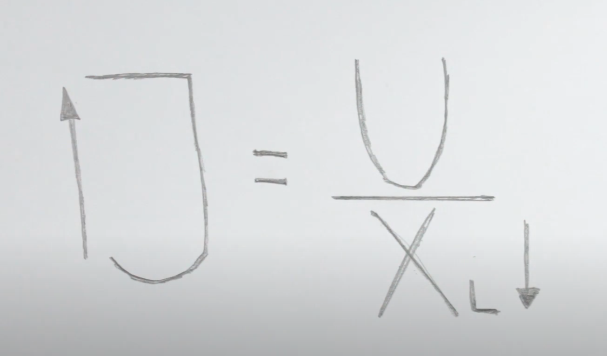 ↑ J = U
X L ↓